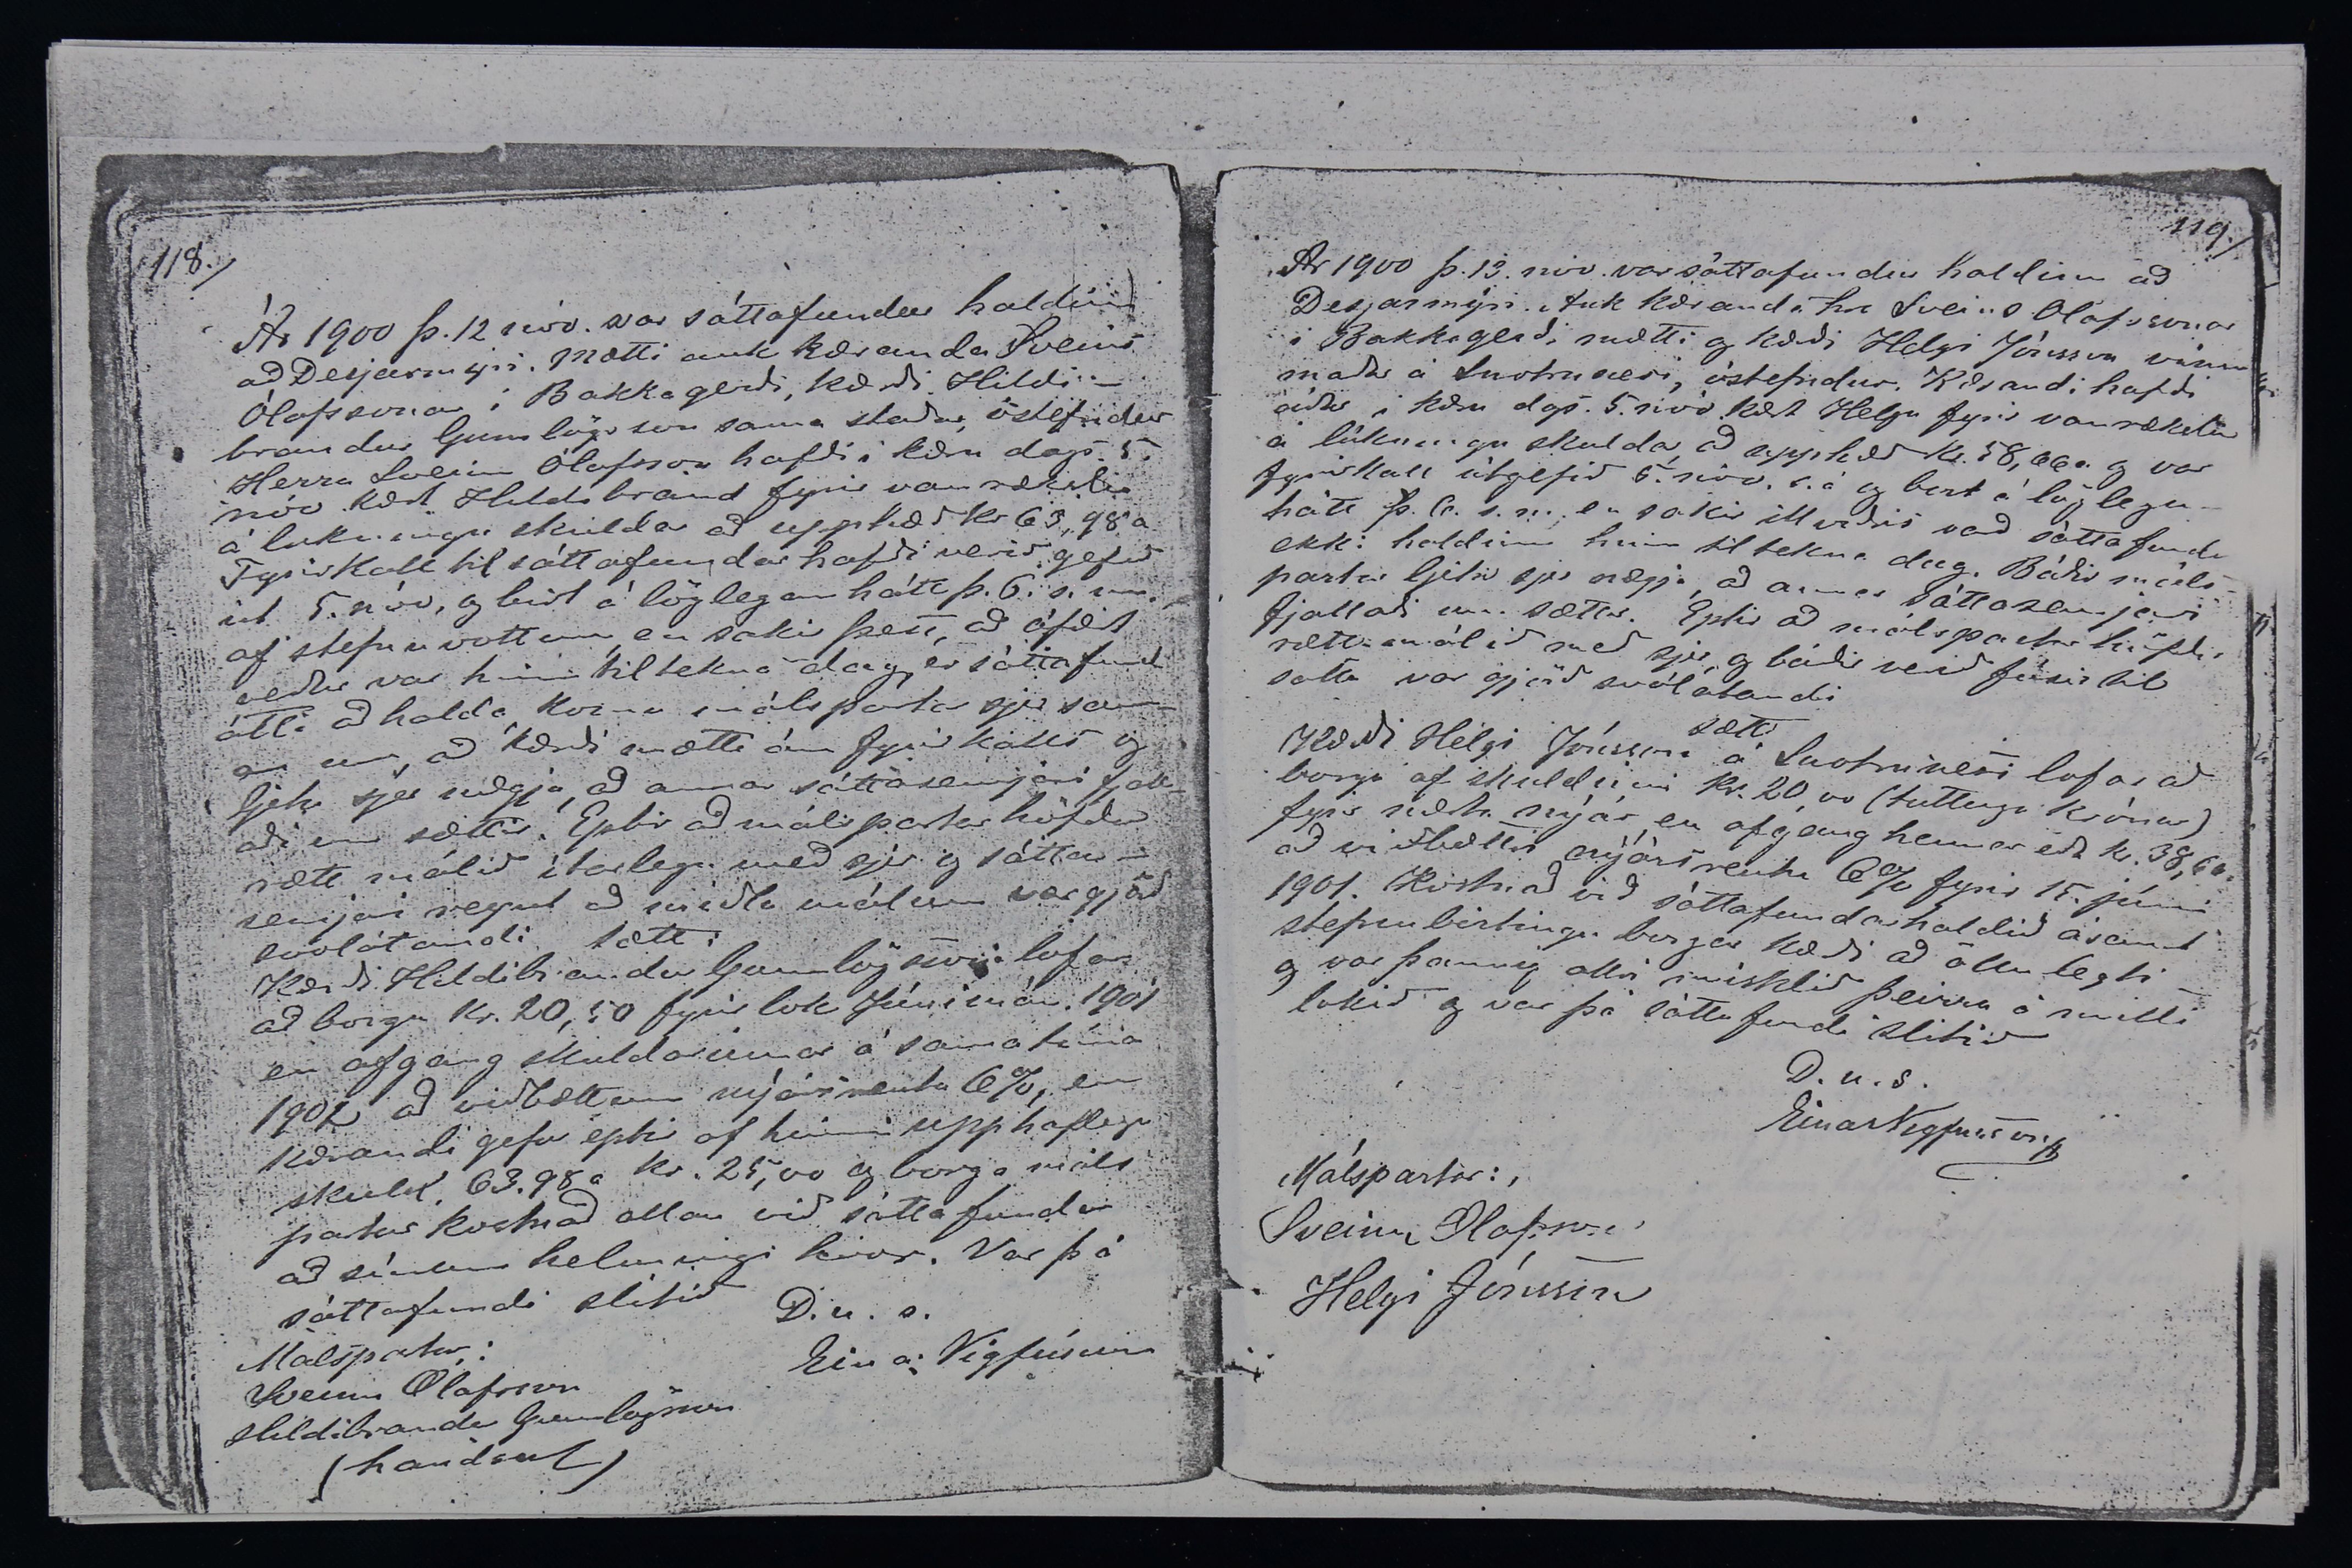 118.
Ár 1900 þ. 12 nóv. var sáttafundur haldinn
að Desjarmýri. Mætti auk kæranda Sveins
Ólafssonar í Bakkagerði, kærði Hildi-
brandur Gunnlögsson sama staðar, óstefndur
Herra Sveinn Ólafsson hafði í kæru dags. 5.
nóv. kært Hildibrand fyrir vanrækslu
á lukningu skulda að upphæð kr 63,98 a
Fyrirkall til sáttafundar hafði verið gefið
út 5. nóv, og birt á löglegan hátt þ. 6. s. m.
af stefnuvottum, en sakir þess, að ófært
veður var hinn tiltekna dag, er sáttafund
átti að halda komu málspartar sjer sam-
an um, að kærði mætti án fyrirkalls og
ljetu sjer nægja, að annar sáttasemjari fjall-
aði um sættir. Eptir að málspartar höfðu
rætt málið ítarlega með sjer og sátta-
semjari reynt að miðla málum var gjörð
svolátandi sætt:
Kærði Hildibrandur Gunnlögsson lofar
að borga kr. 20,50 fyrir lok Júnímán. 1901
en afgang skuldarinnar á sama tíma
1902 að viðbættum nýársrentu 6%, en
kærandi gefur eptir af hinni upphaflegu
skuld. 63.98 a kr. 25,00 og borga máls
partar kostnað allan við sáttafundinn
að sínum helmingi hvor. Var þá
sáttafundi slitið
D. u. s.
Einar Vigfússon
Málspartar:
Sveinn Ólafsson
Hildibrandur Gunnlögsson
(handsal)
119.
Ár 1900 þ. 13. nóv. var sáttafundur haldinn að
Desjarmýri. Auk kæranda hr Sveins Ólafssonar
í Bakkagerði mætti og kærði Helgi Jónsson vinnu
maður á Snotrunesi, óstefndur. Kærandi hafði
áður í kæru dags. 5. nóv kært Helga fyrir vanrækslu
á lúkningu skulda, að upphæð kr. 58,66 a og var
fyrirkall útgefið 5. nóv. s.á og birt á löglegan
hátt þ. 6. s. m. en sakir illviðris varð sáttafundi
ekki haldinn hinn tiltekna dag. Báðir máls-
partar ljetu sjer nægja, að annar sáttasemjari
fjallaði um sættir. Eptir að málspartar höfðu
rætt málið með sjer, og báðir verið fúsir til
sátta var gjörð svolátandi
sætt
Kærði Helgi Jónsson á Snotrunesi lofar að
borga af skuldinni kr. 20,00 (tuttugu krónur)
fyrir næsta nýár en afgang hennar eða kr. 38,66
að viðbættri nýársrentu 6% fyrir 15. júní
1901. Kostnað við sáttafundarhaldið ásamt
stefnubirtingu borgar kærði að öllu leyti
og var þannig allri misklíð þeirra á milli
lokið og var þá sáttafundi slitið
D. u. s.
Einar Vigfússon
Málspartar:
Sveinn Ólafsson
Helgi Jónsson